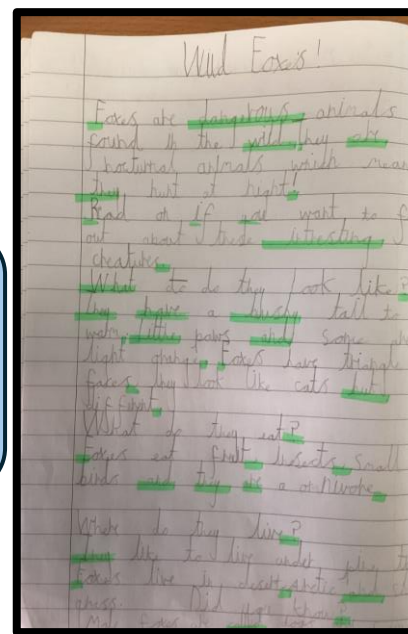 Wild Foxes!
Foxes are dangerous animals
found in the wild, they are
nocturnal animals which mean
they hunt at night!
Read on if you want to f
out about these intresting
creatures.
What do do they look like?
they have a bushy tail to
warm, little paws and some are
light orange. Foxes have triangle
faces, they look like cats but
What do they eat?
Foxes eat fruit, insects, small
birds and they are a
Where do they live?
they like to live under
Foxes live in desert, arctic and
grass. Did you know?
Male foxes are dogs